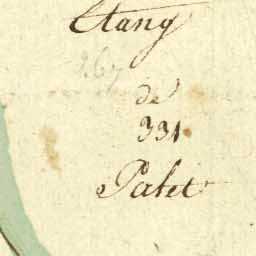 Etang
267
de
331.
Palet